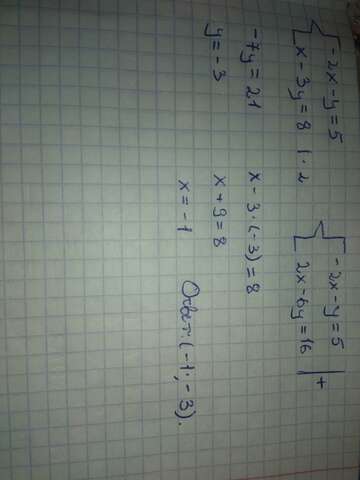 { -2x-y=5
x-3y=8 | ·2
{ -2x-y=5
2x-6y=16 | +
-7y=21
y=-3
x-3·(-3)=8
x+9=8
x=-1
Ответ: (-1; -3).